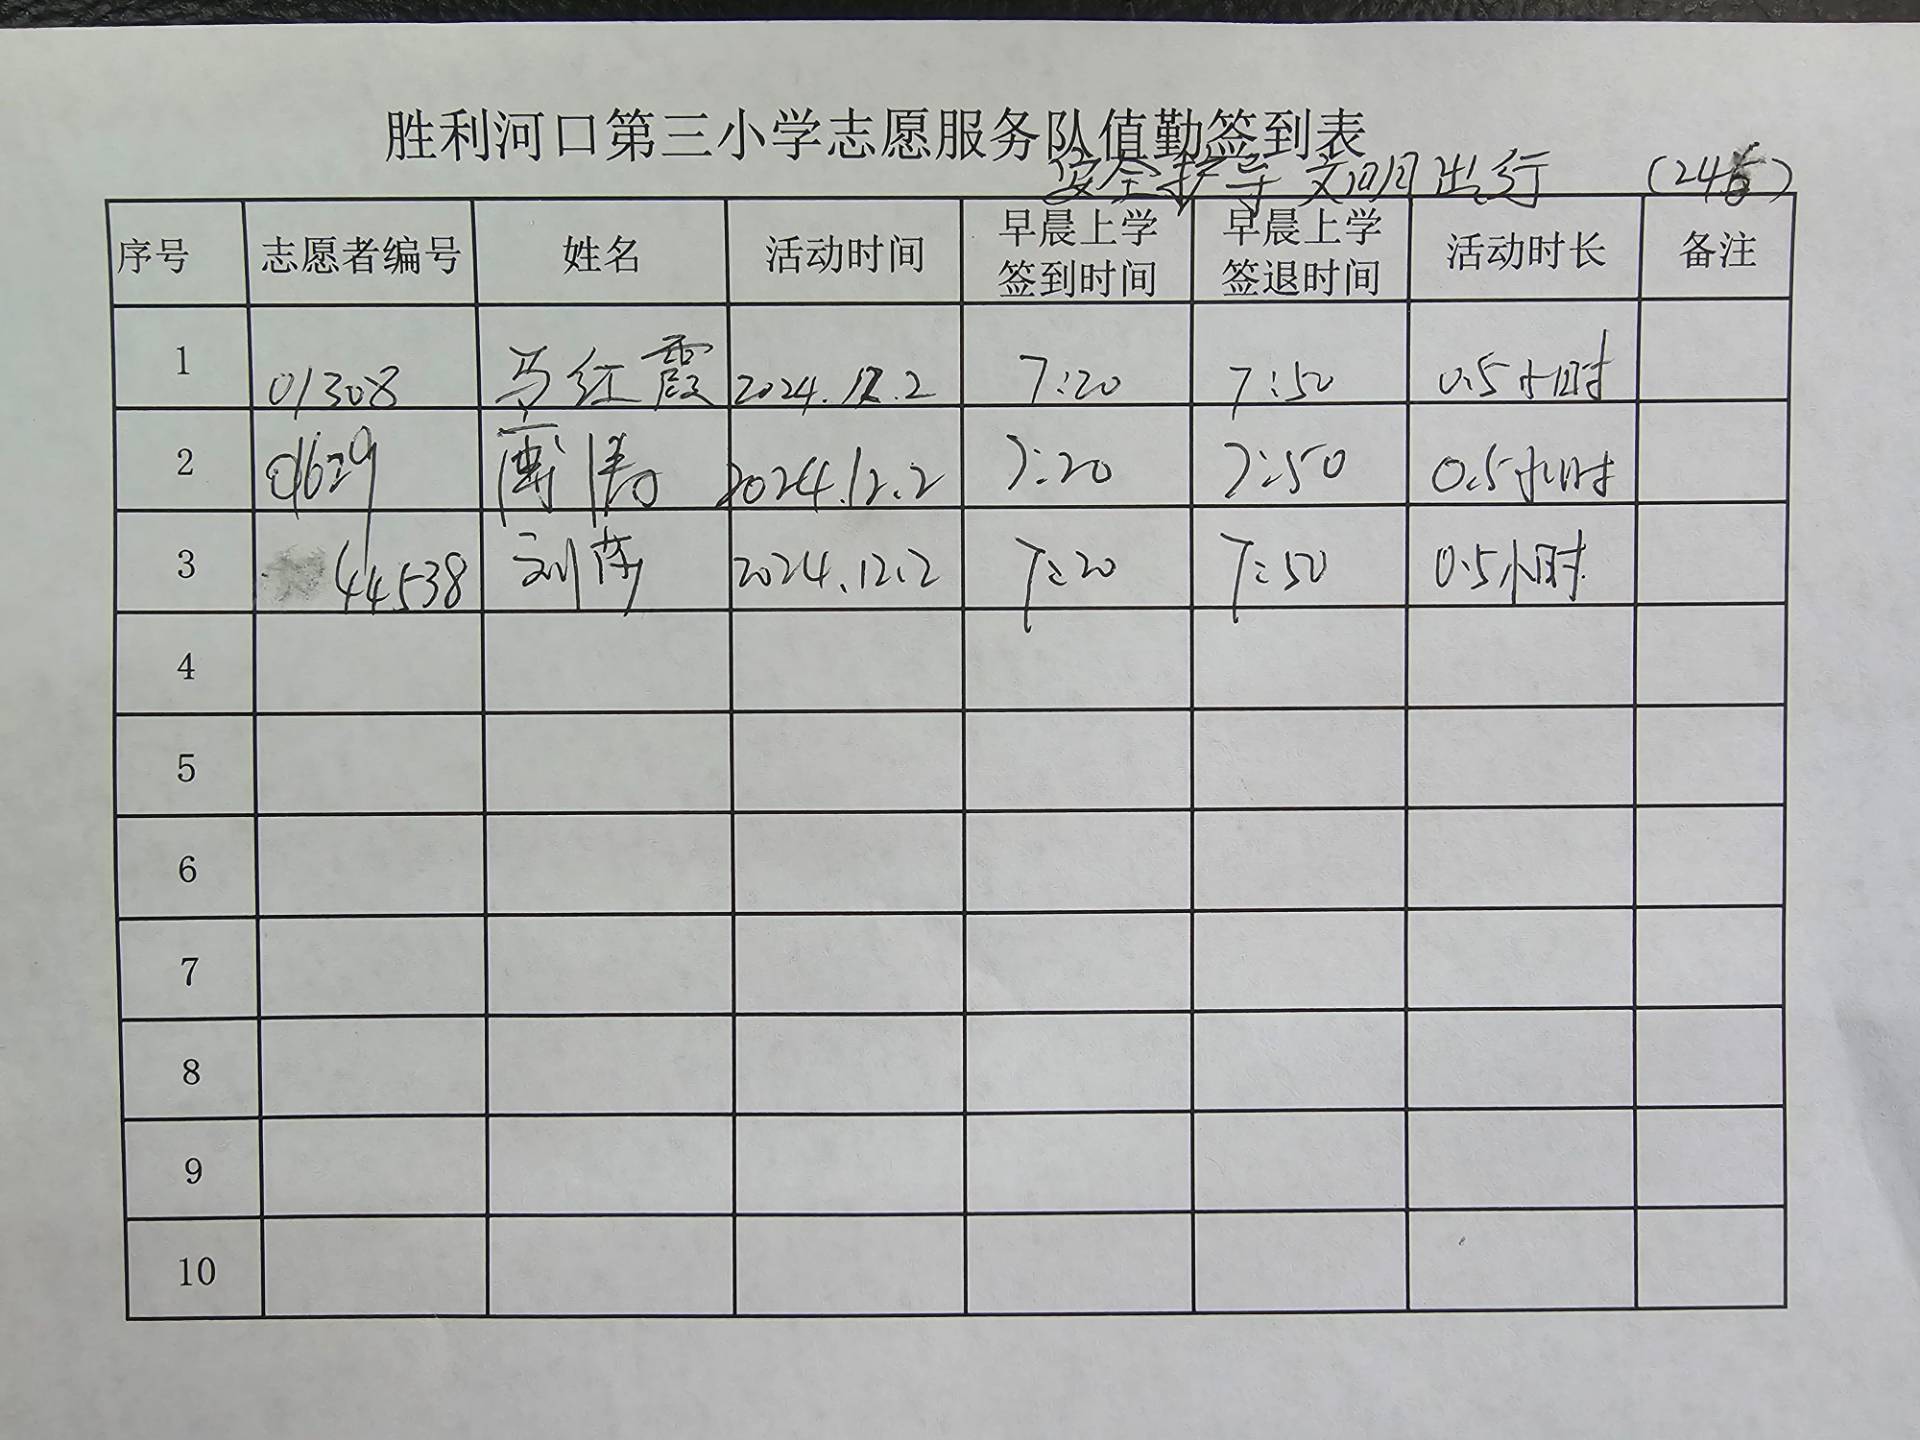 胜利河口第三小学志愿服务队值勤签到表
安全指导 文明出行 (24
序号 志愿者编号 姓名 活动时间 早晨上学签到时间 早晨上学签退时间 活动时长 备注
1 01308 马红霞 2024.12.2 7:20 7:50 0.5小时
2 01629 2024.12.2 7:20 7:50 0.5小时
3 44538 刘莎 2024.12.2 7:20 7:50 0.5小时
4
5
6
7
8
9
10